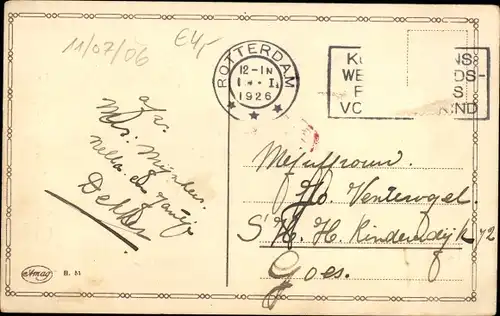 11/07/06
€4,-
ROTTERDAM
12-1N
1926
K NS
WE DS-
F S
VO IND
afz.
Dekker
Mejuffrouw.
Jo. Ventevogel.
S' H. H. Kinderdijk 42
Goes.
Amag B. 51